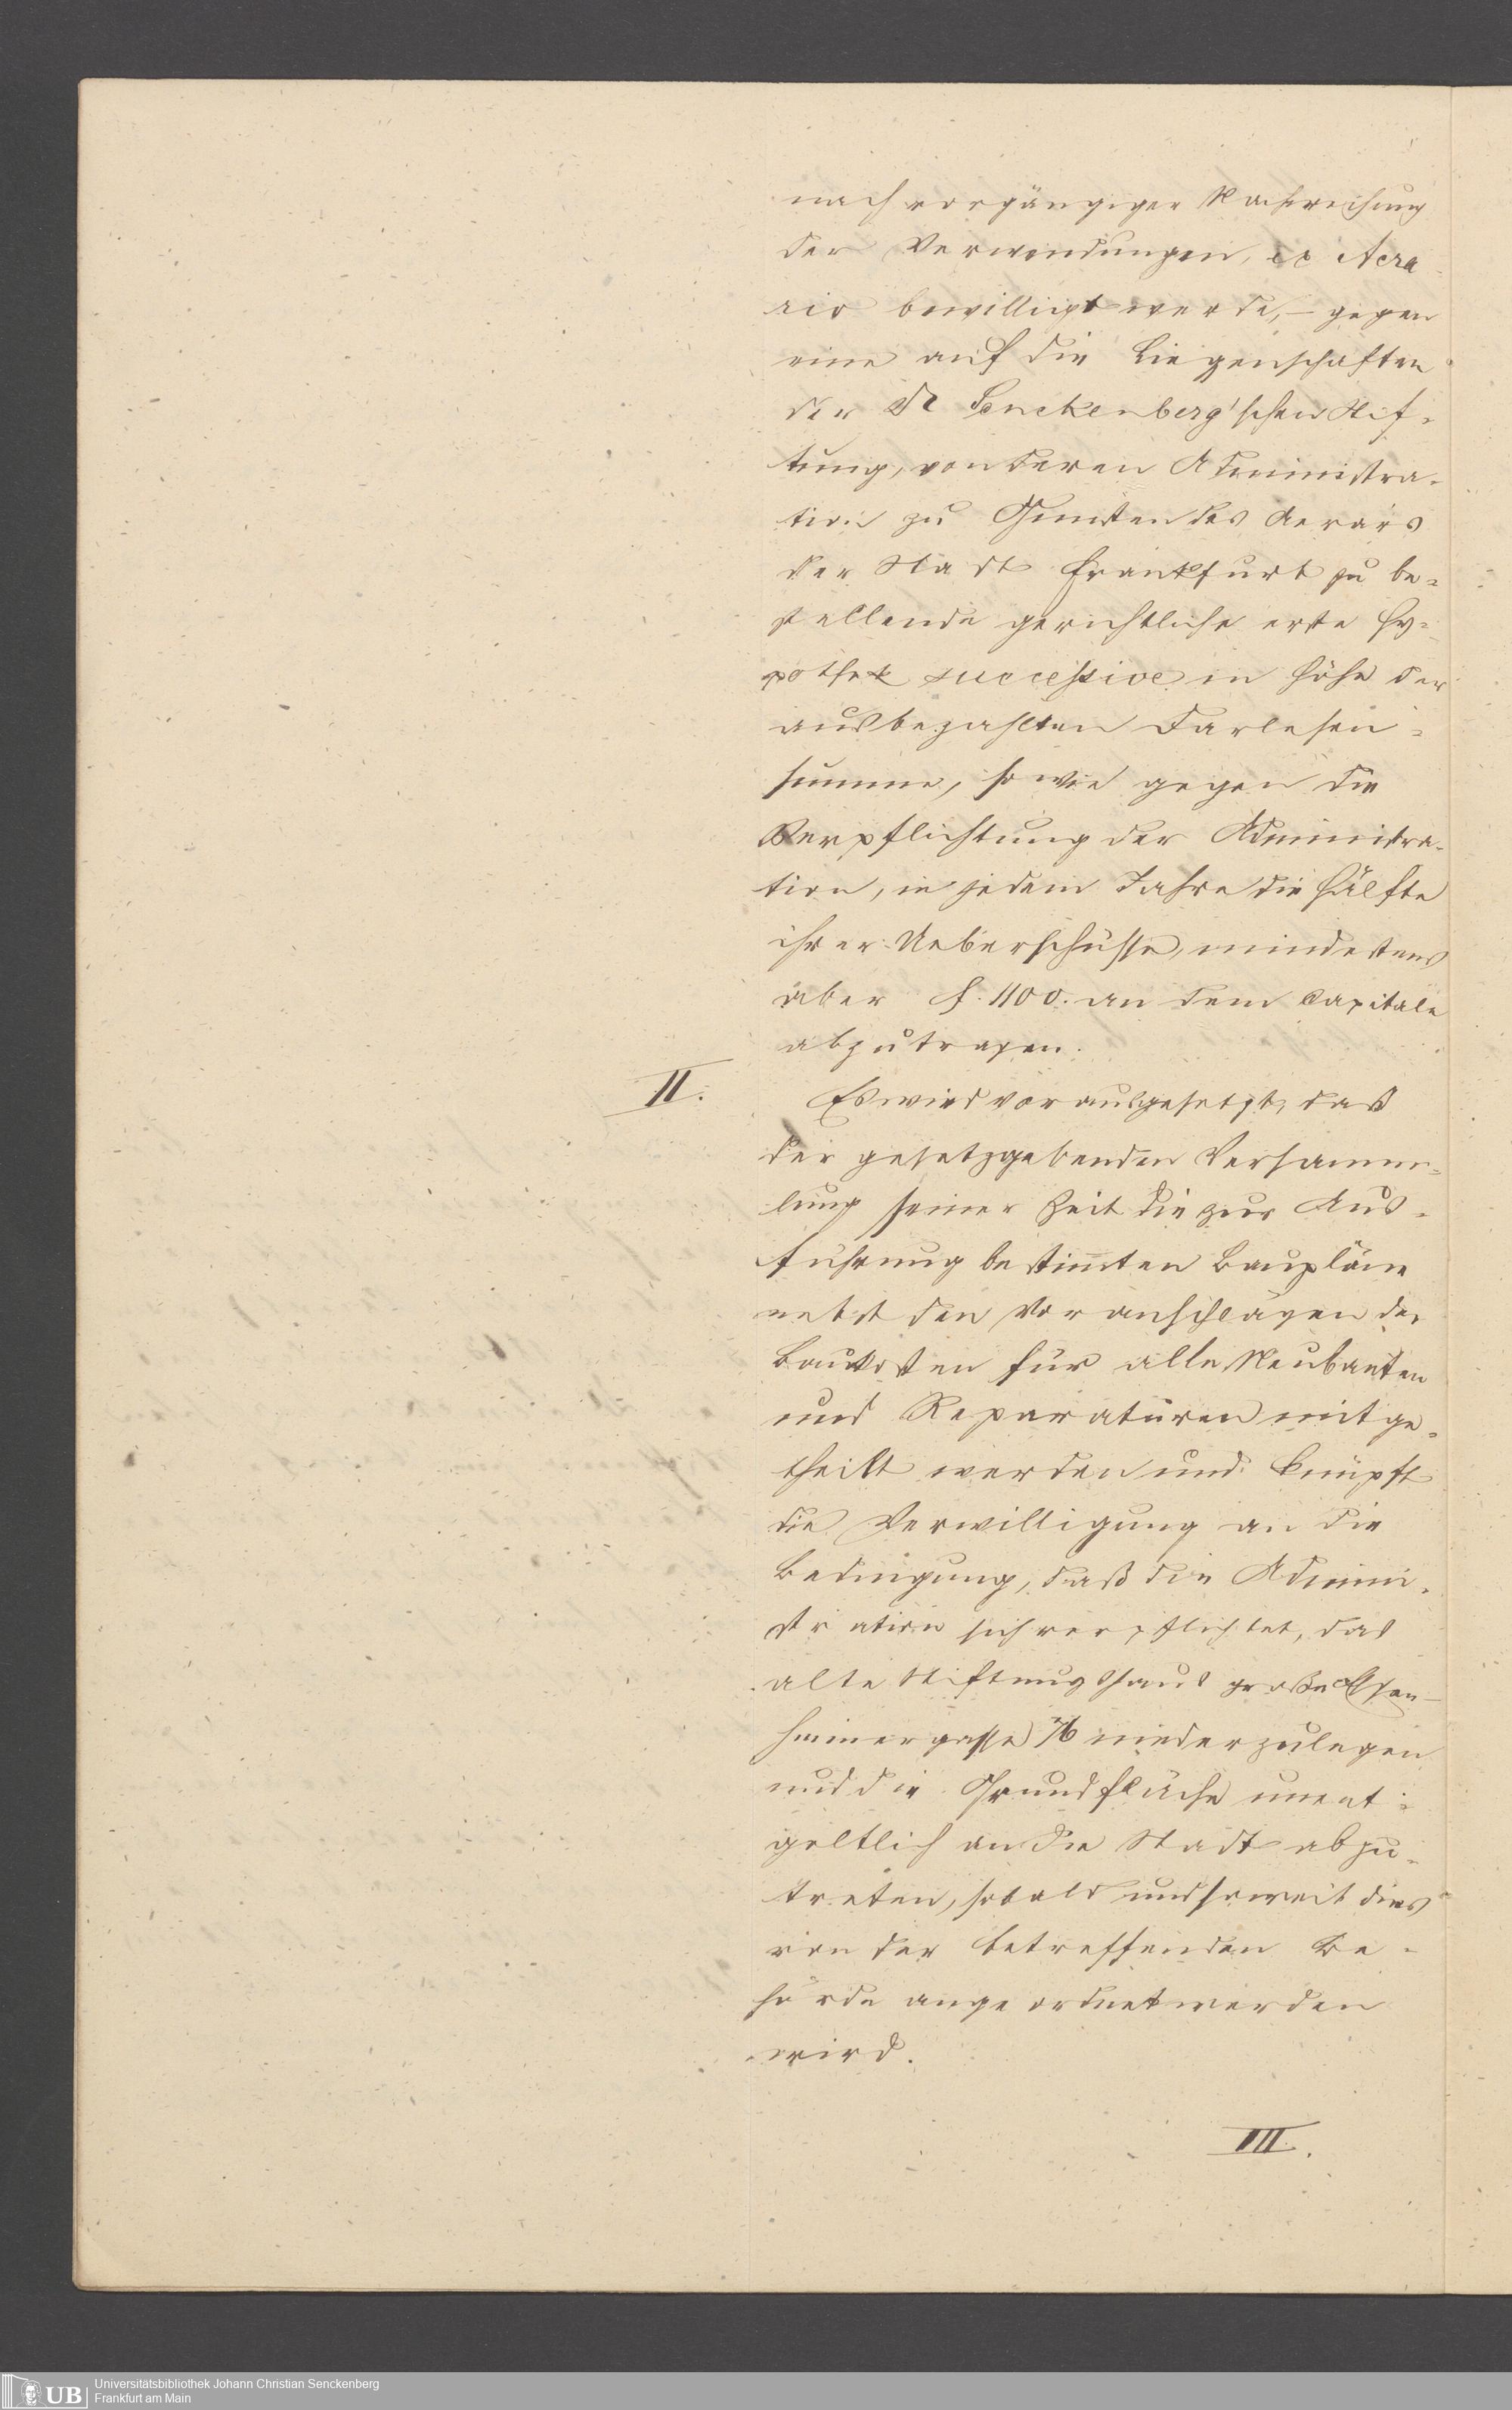 nach vorgängiger Nachweisung
der Verwendungen, ex Aera-
rio bewilligt werde, – gegen
eine auf die Liegenschaften
der Dr Senckenberg'schen Stif-
tung, von deren Administra-
tion zu Gunsten des Aerars
der Stadt Frankfurt zu be-
stellende gerichtliche erste Hy-
pothek successive in Höhe der
ausbezahlten Darlehen-
summe, sowie gegen die
Verpflichtung der Administra-
tion, in jedem Jahre die Hälfte
ihrer Ueberschüsse, mindestens
aber f. 1100. an dem Capitale
abzutragen.
II. Es wird vorausgesetzt, daß
der gesetzgebenden Versamm-
lung seiner Zeit die zur Aus-
führung bestimten Baupläne
nebst den Voranschlägen der
Baukosten für alle Neubauten
und Reparaturen mitge-
theilt werden und knüpft
die Verwilligung an die
Bedingung, daß die Admini-
stration sich verpflichtet, das
alte Stiftungshaus große Eschen-
heimergasse 76 niederzulegen
und die Grundfläche unent-
geltlich an die Stadt abzu-
treten, sobald und soweit dies
von der betreffenden Be-
hörde angeordnet werden
wird.
III.
UB
Universitätsbibliothek Johann Christian Senckenberg
Frankfurt am Main